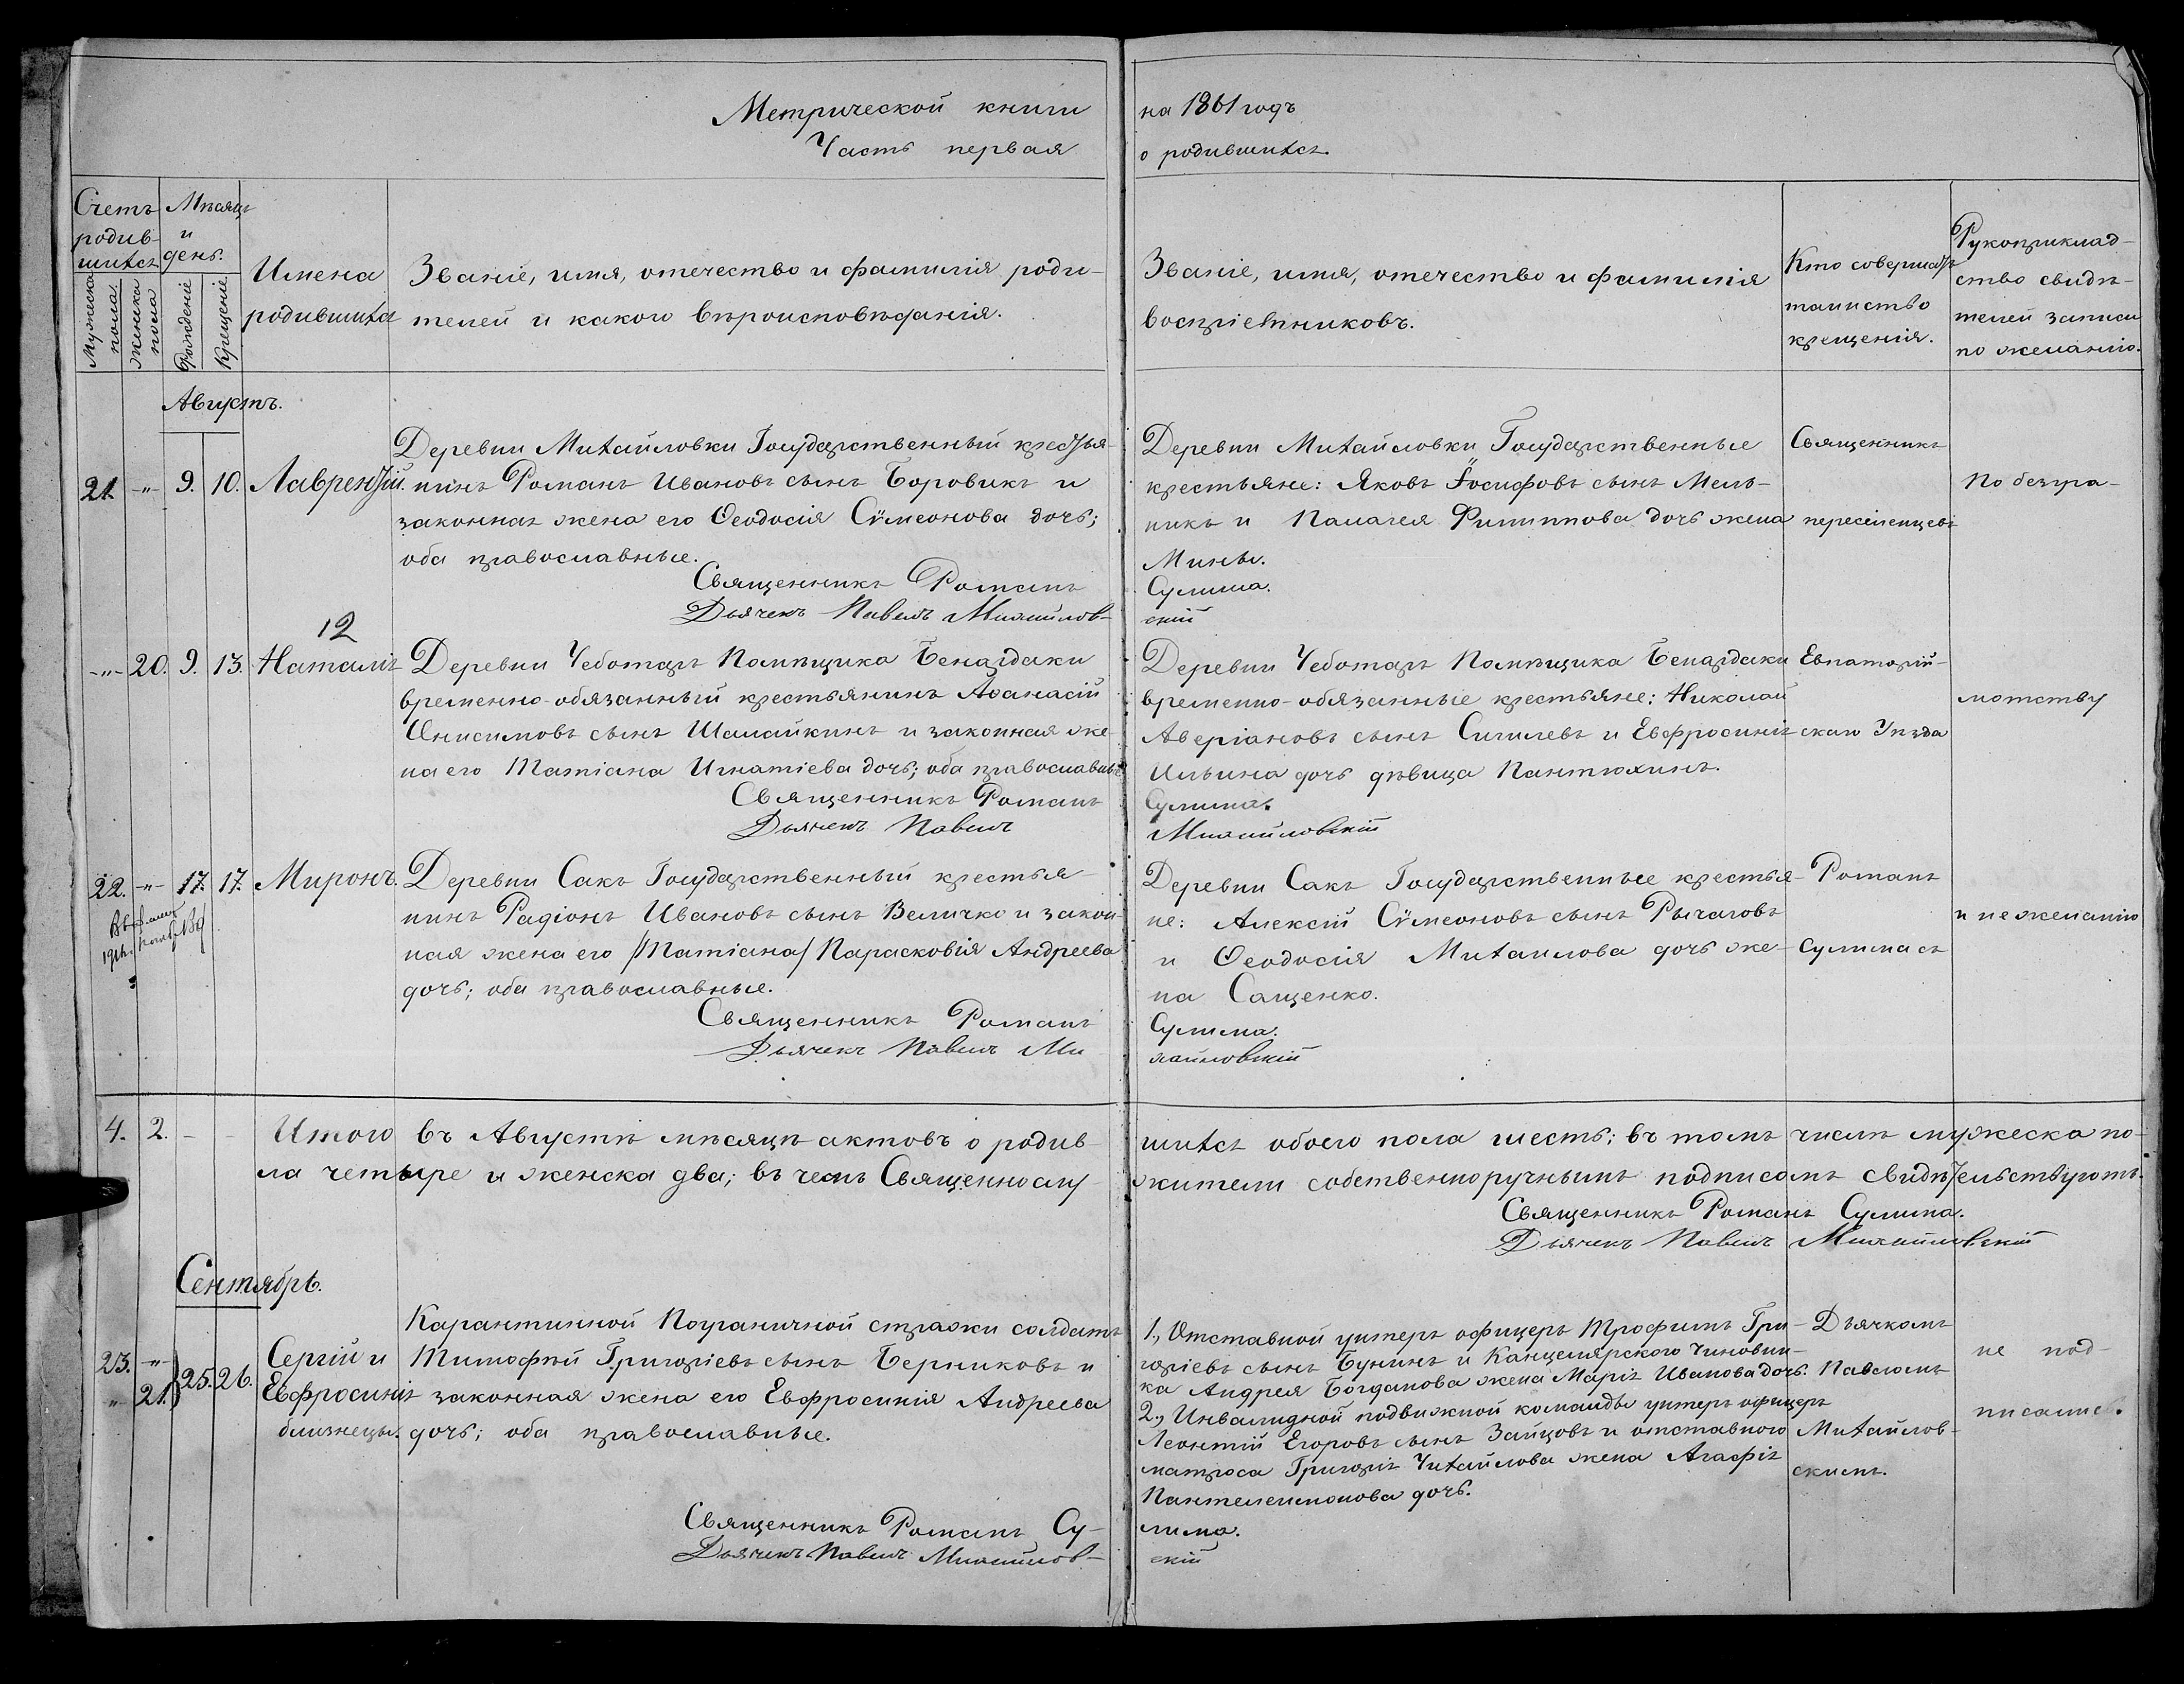 Метрической книги на 1861 годъ
Часть первая о родившихся.
Счетъ родив-
шихся
Мужеска пола.
женска пола
Мѣсяцъ
и
день.
Рожденіе
Крещеніе.
Имена
родившихся
Званіе, имя, отечество и фамилія роди-
телей и какого вѣроисповѣданія.
Званіе, имя, отечество и фамилія
воспріемниковъ.
Кто совершалъ
таинство
крещенія.
Рукоприклад-
ство свидѣ-
телей записи
по желанію.
Августъ.
21. -"- 9. 10. Лаврентій.
Деревни Михайловки Государственный крестья-
нинъ Романъ Ивановъ сынъ Боровикъ и
законная жена его Ѳеодосія Сѵмеонова дочь;
оба православные.
Священникъ Романъ
Дьячекъ Павелъ Михайлов-
Деревни Михайловки Государственные
крестьяне: Яковъ Іосифовъ сынъ Мель-
никъ и Палагея Филиппова дочь жена
Мины.
Сулима.
скій
Священникъ
переселенцевъ
По безгра-
12
-"- 20. 9. 13. Наталія
Деревни Чеботаръ Помѣщика Бенардаки
временно-обязанный крестьянинъ Аѳанасій
Онисимовъ сынъ Шалайкинъ и законная же-
на его Татіана Игнатіева дочь; оба православные
Священникъ Романъ
Дьячекъ Павелъ
Деревни Чеботаръ Помѣщика Бенардаки
временно-обязанные крестьяне: Николай
Аверіановъ сынъ Сигилевъ и Евфросинія
Ильина дочь дѣвица Пантюхинъ.
Сулима.
Михайловскій
Евпаторій-
скаго Уѣзда
мотству
22. -"- 17. 17. Миронъ.
Деревни Сакъ Государственный крестья-
нинъ Радіонъ Ивановъ сынъ Величко и закон-
ная жена его /Татіана/ Парасковія Андреева
дочь; оба православные.
Священникъ Романъ
Дьячекъ Павелъ Ми
Деревни Сакъ Государственные крестья-
не: Алексій Сѵмеоновъ сынъ Рычаговъ
и Ѳеодосія Михаилова дочь же-
на Сащенко.
Сулима.
хайловскій
Романъ
Сулима съ
и не желанію
4. 2. - - Итого въ Августѣ мѣсяцѣ актовъ о родив-
шихся обоего пола шесть; въ томъ числѣ мужеска по-
ла четыре и женска два; въ чемъ Священнослу-
жители собственноручнымъ подписомъ свидѣтельствуютъ.
Священникъ Романъ Сулима.
Дьячекъ Павелъ Михайловскій
Сентябрь.
23. -"-
-"- 21. 25. 26.
Сергій и
Евфросинія
близнецы.
Карантинной Пограничной стражи солдатъ
Тимофѣй Григоріевъ сынъ Берниковъ и
законная жена его Евфросинія Андреева
дочь; оба православные.
Священникъ Романъ Су-
Дьячекъ Павелъ Михайлов-
1., Отставной унтеръ офицеръ Трофимъ Гри-
горіевъ сынъ Бунинъ и Канцелярского Чиновни-
ка Андрея Богданова жена Марія Иванова дочь.
2., Инвалидной подвижной команды унтеръ офицеръ
Леонтій Егоровъ сынъ Зайцовъ и отставного
матроса Григорія Чихайлова жена Агафія
Пантелеимонова дочь.
лима.
скій
Дьячкомъ
Павломъ
Михайлов-
скимъ.
не под-
писались.